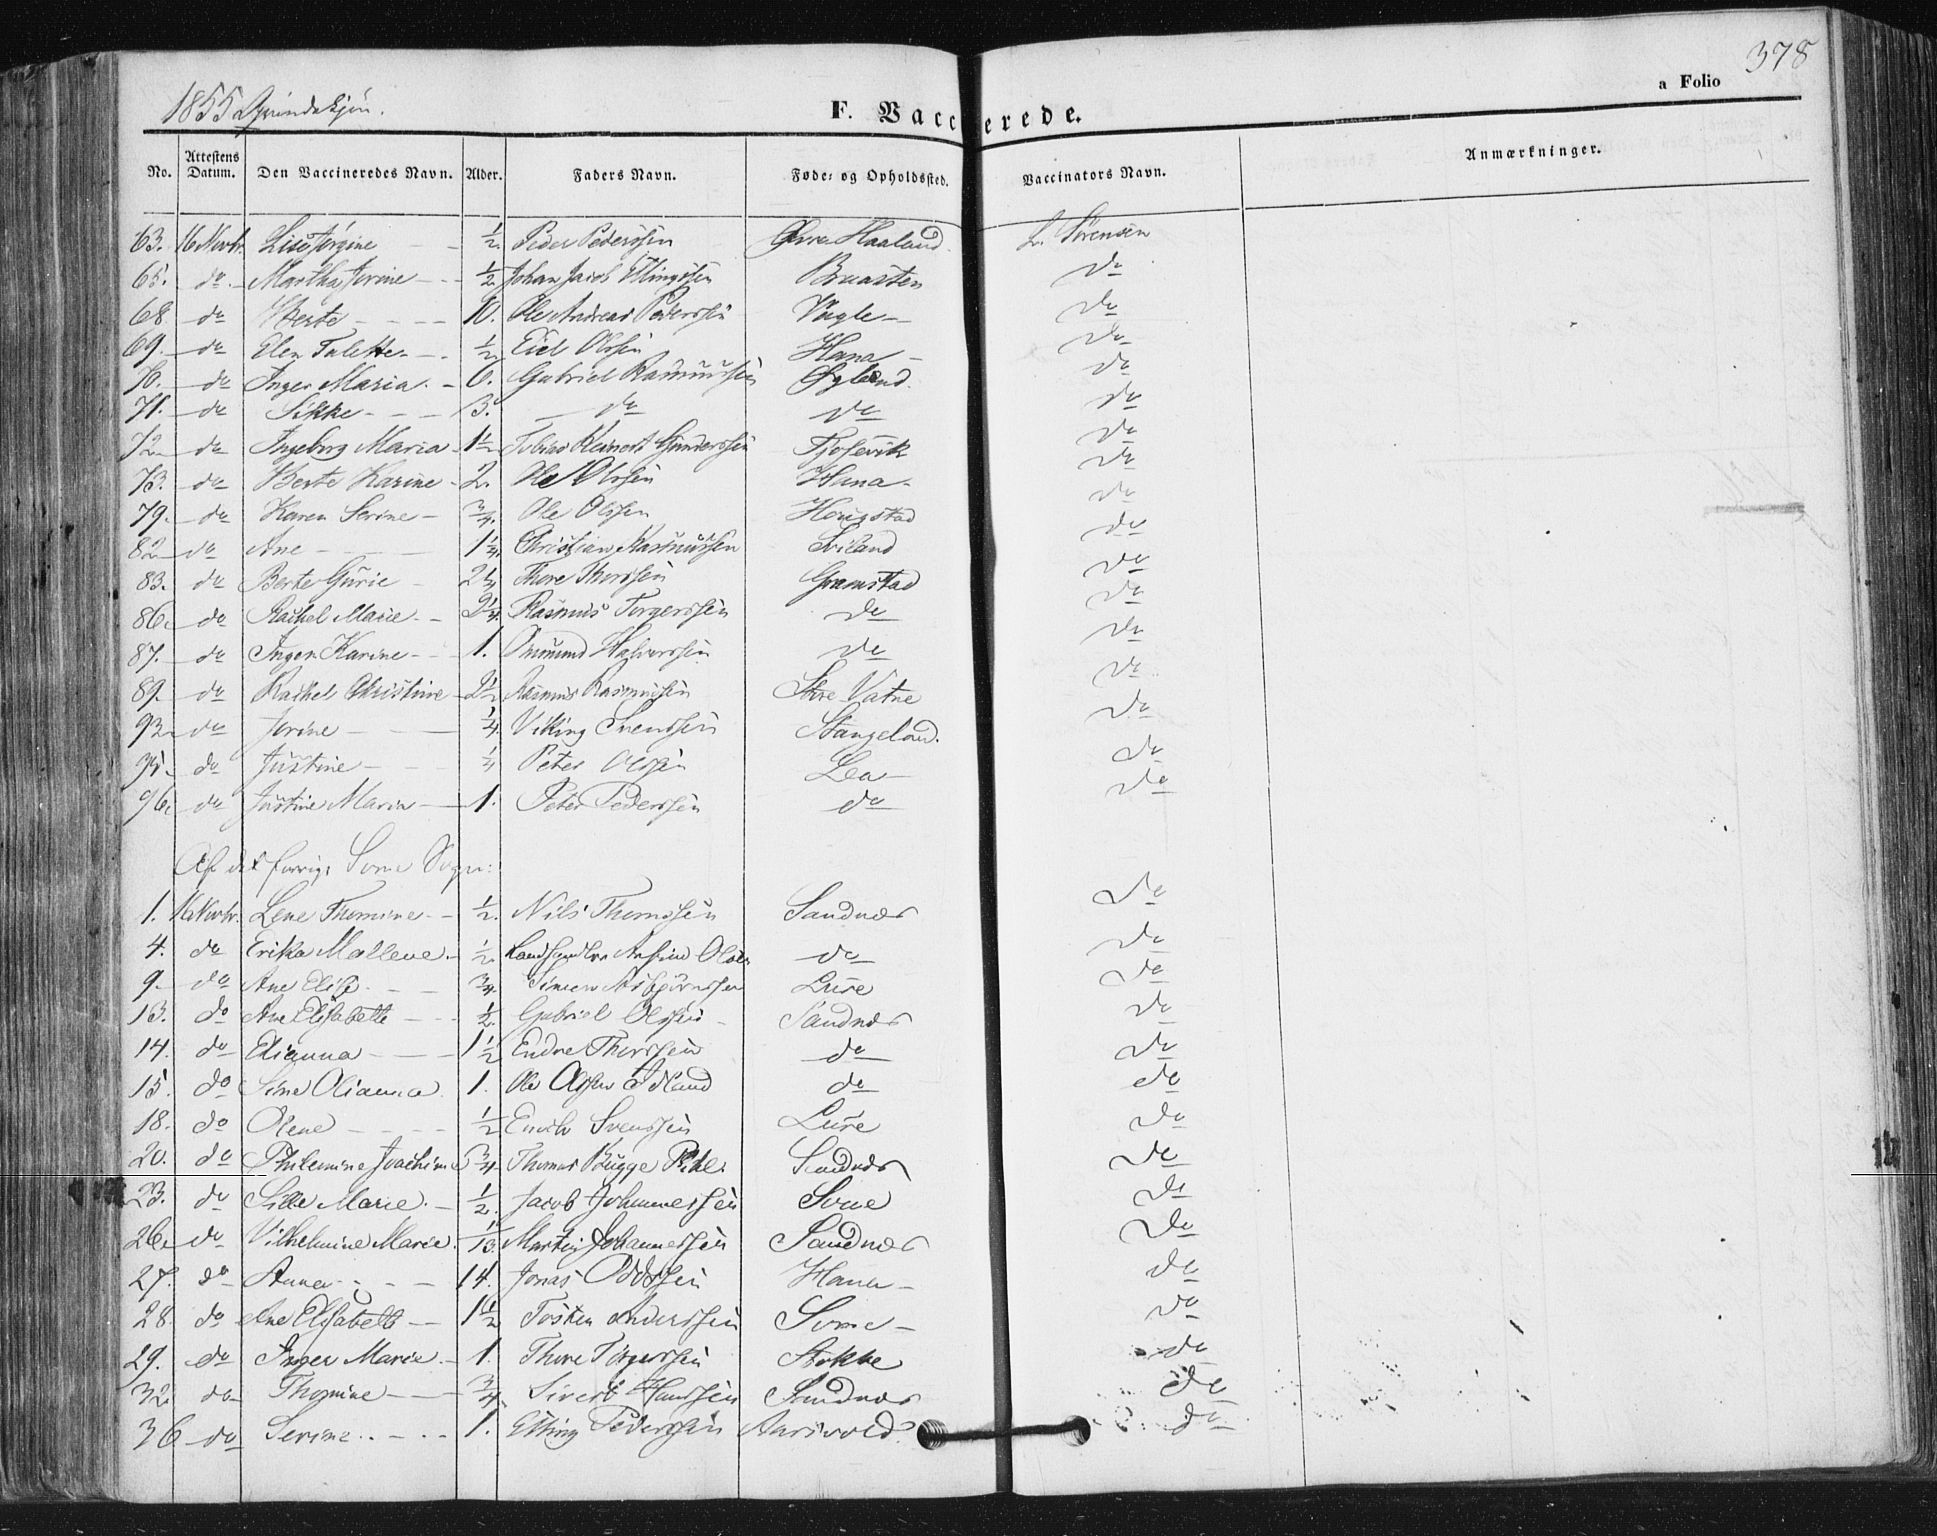 378
a Folio
1855 Qvindekjön.
F. Vaccinerede.
No. Attestens Datum. Den Vaccineredes Navn. Alder. Faders Navn. Føde- og Opholdssted. Vaccinators Navn. Anmærkninger.
63. 16 Novbr. Lise Jörgine 1/2. Peder Pederssen Haaland L. Sörensen
65. do Martha Jorine 1/2 Johan Jacob Ellingssen Bruasten do
68 do Berte 10. Ole Andreas Pederssen Vagle do
69. do Elen Talette 1/2 Eiel Olssen Hana do
70. do Inger Maria 6. Gabriel Rasmussen Öglænd do
71. do Sikke 3. do do do
72 do Ingeborg Maria 1 1/2 Tobias Reinert Gunderssen Fjosevik do
73. do Berte Karine 2. Ole Olssen Hana do
79. do Karen Serine 3/4. Ole Olssen Hougstad do
82 do Ane 1 1/4. Christian Rasmussen Sviland do
83. do Berte Gurie 2 1/4 Thore Thorssen Gramstad do
86. do Rachel Marie 2 1/4. Rasmus Torgerssen do do
87. do Inger Karine 1. Omund Halvorssen do do
89. do Rachel Christine 2 1/2 Rasmus Rasmussen Store Vatne do
93 do Jorine 1/4. Viking Svenssen Stangeland. do
95. do Justine 1/4 Peter Olssen Lea do
96. do Justine Maria 1. Peter Pederssen do do
Af det forrige Some Sogn:
1. 16 Novbr. Lene Thomine 1/2. Nils Thomssen Sandnæs do
4. do Erika Mallene 1/2. Landhandler Olsen do do
9. do Ane Elise 3/4. Simon Asbjörnssen Lure do
13. do Ane Elisabeth 1/2 Gabriel Olssen Sandnæs do
14. do Elianna 1 1/2 Endre Thorssen do do
15. do Sine Olianna 1. Ole Olssen do do
18. do Olene 1/2 Enok Svenssen Lure do
20. do Philemine Joachime 3/4. Thomas Bugge Pihl. Sandnæs do
23. do Sille Marie 1/2. Jacob Johannessen Some do
26. do Vilhelmine Marie 1/3 Martin Johannessen Sandnæs do
27. do Anna 14. Jonas Oddssen Hana do
28. do Ane Elisabeth 1 1/2 Tosten Anderssen Some do
29. do Inger Marie 1. Thore Torgerssen Stokke do
32 do Thomine 3/4. Sivert Hanssen Sandnæs do
36 do Serine 1. Elling Pederssen Aarsvold do